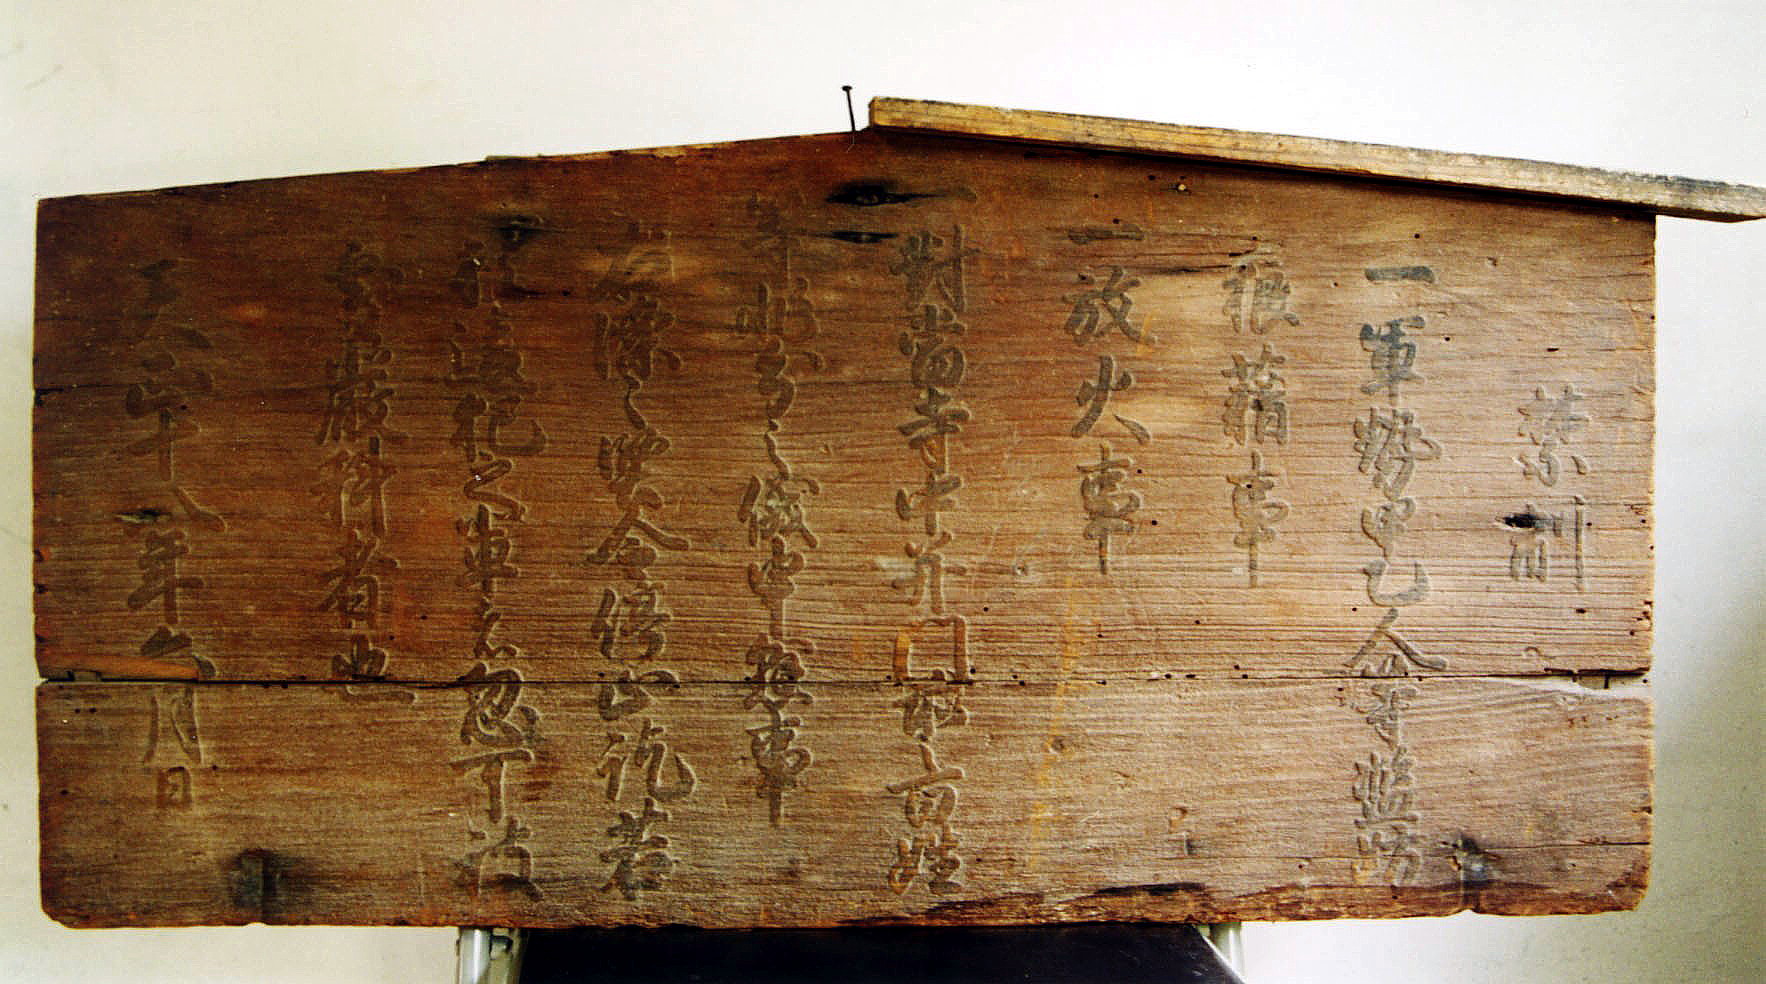 禁制
一軍勢甲乙人等濫妨
狼藉事
一放火事
一對當寺中并門前之百姓
等非分之儀申懸事
右條々堅令停止訖若
於違犯之輩者忽可被
處嚴科者也
天正十八年 月日